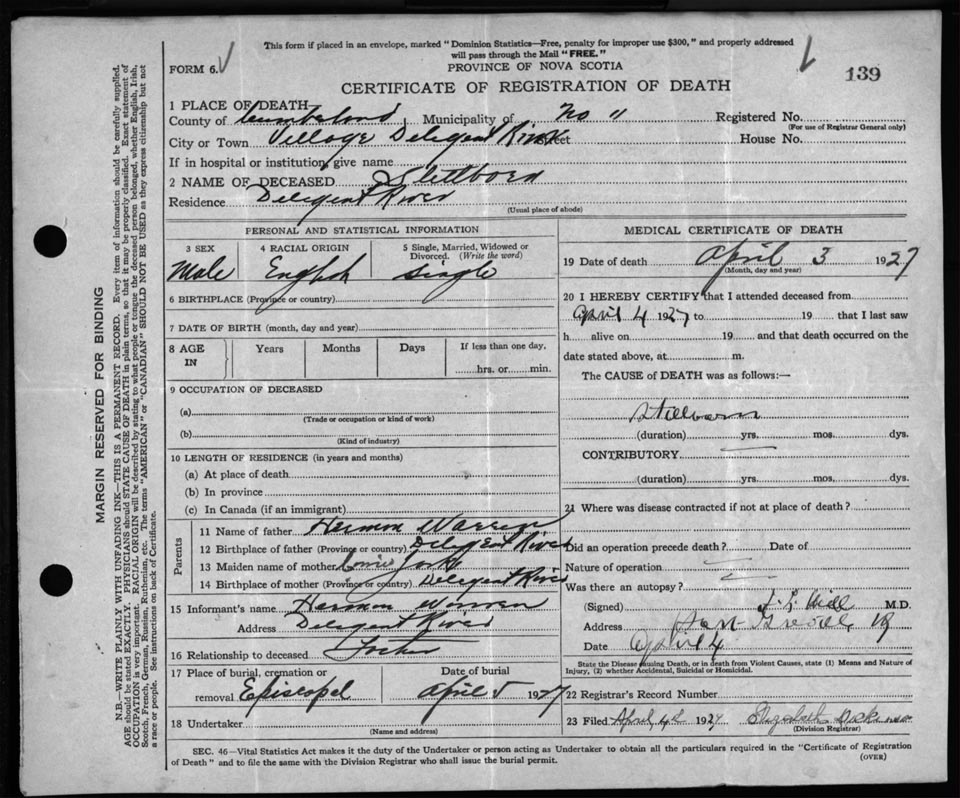 This form if placed in an envelope, marked "Dominion Statistics—Free, penalty for improper use $300," and properly addressed
will pass through the Mail "FREE."
FORM 6.
PROVINCE OF NOVA SCOTIA
139
CERTIFICATE OF REGISTRATION OF DEATH
1 PLACE OF DEATH
County of Cumberland Municipality of No 11 Registered No.
(For use of Registrar General only)
City or Town Village Deligent River Street House No.
If in hospital or institution, give name
2 NAME OF DECEASED Stillborn
Residence Deligent River
(Usual place of abode)
PERSONAL AND STATISTICAL INFORMATION
3 SEX 4 RACIAL ORIGIN 5 Single, Married, Widowed or
Divorced. (Write the word)
Male English Single
6 BIRTHPLACE (Province or country)
7 DATE OF BIRTH (month, day and year)
8 AGE IN Years Months Days If less than one day,
hrs. or min.
9 OCCUPATION OF DECEASED
(a)
(Trade or occupation or kind of work)
(b)
(Kind of industry)
10 LENGTH OF RESIDENCE (in years and months)
(a) At place of death
(b) In province
(c) In Canada (if an immigrant)
Parents
11 Name of father Hermon Warren
12 Birthplace of father (Province or country) Deligent River
13 Maiden name of mother
14 Birthplace of mother (Province or country) Deligent River
15 Informant's name Hermon Warren
Address Deligent River
16 Relationship to deceased Father
17 Place of burial, cremation or Date of burial
removal Episcopal April 5 1927
18 Undertaker
(Name and address)
MEDICAL CERTIFICATE OF DEATH
19 Date of death April 3 1927
(Month, day and year)
20 I HEREBY CERTIFY that I attended deceased from
April 4 1927 to 19 that I last saw
h alive on 19 and that death occurred on the
date stated above, at m.
The CAUSE of DEATH was as follows:—
Stillborn
(duration) yrs. mos. dys.
CONTRIBUTORY
(duration) yrs. mos. dys.
21 Where was disease contracted if not at place of death?
Did an operation precede death? Date of
Nature of operation
Was there an autopsy?
(Signed) M.D.
Address
Date April 4
State the Disease causing Death, or in death from Violent Causes, state (1) Means and Nature of
Injury, (2) whether Accidental, Suicidal or Homicidal.
22 Registrar's Record Number
23 Filed April 4th 1927 Elizabeth
(Division Registrar)
SEC. 46—Vital Statistics Act makes it the duty of the Undertaker or person acting as Undertaker to obtain all the particulars required in the "Certificate of Registration
of Death" and to file the same with the Division Registrar who shall issue the burial permit.
(OVER)
MARGIN RESERVED FOR BINDING
N.B.—WRITE PLAINLY WITH UNFADING INK—THIS IS A PERMANENT RECORD. Every item of information should be carefully supplied.
AGE should be stated EXACTLY. PHYSICIANS should STATE CAUSE OF DEATH in plain terms, so that it may be properly classified. Exact statement of
OCCUPATION is very important. RACIAL ORIGIN will be described by stating to what people or tongue the deceased person belonged, whether English, Irish,
Scotch, French, German, Russian, Ruthenian, etc. The terms "AMERICAN" or "CANADIAN" SHOULD NOT BE USED as they express citizenship but not
a race or people. See instructions on back of Certificate.